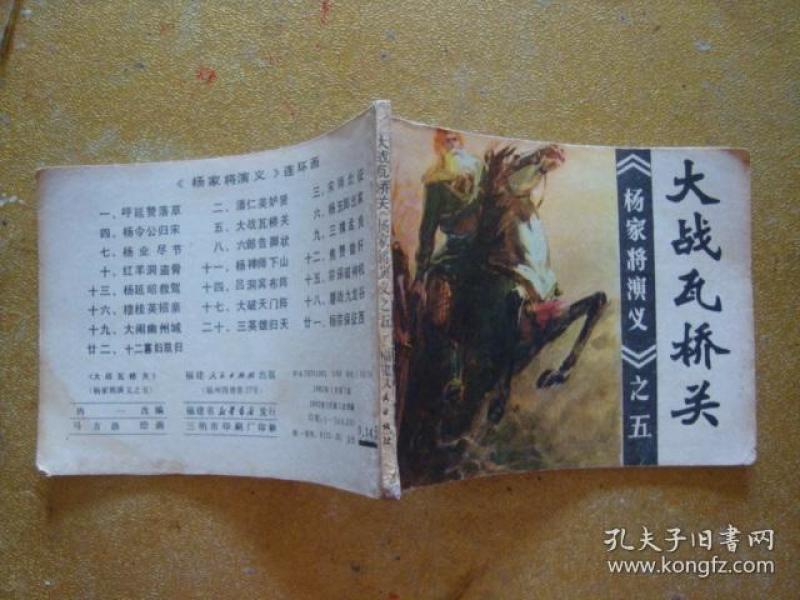 《杨家将演义》连环画
一、呼延赞落草
二、潘仁美妒贤
三、宋师北征
四、杨令公归宋
五、大战瓦桥关
六、杨五郎出家
七、杨业尽节
八、六郎告御状
九、三擒孟良
十、红羊洞盗骨
十一、杨禅师下山
十二、焦赞做奸
十三、杨延昭救驾
十四、吕洞宾布阵
十五、宗保破神机
十六、穆桂英招亲
十七、大破天门阵
十八、鏖战九龙谷
十九、大闹幽州城
二十、三英雄归天
廿一、杨宗保征西
廿二、十二寡妇凯归
《大战瓦桥关》
(杨家将演义之五)
改编
绘画
福建人民出版社出版
福建省新华书店发行
三明市印刷厂印刷
大战瓦桥关《杨家将演义》之五
福建人民出版社
大战瓦桥关
《杨家将演义》之五
孔夫子旧书网
www.kongfz.com